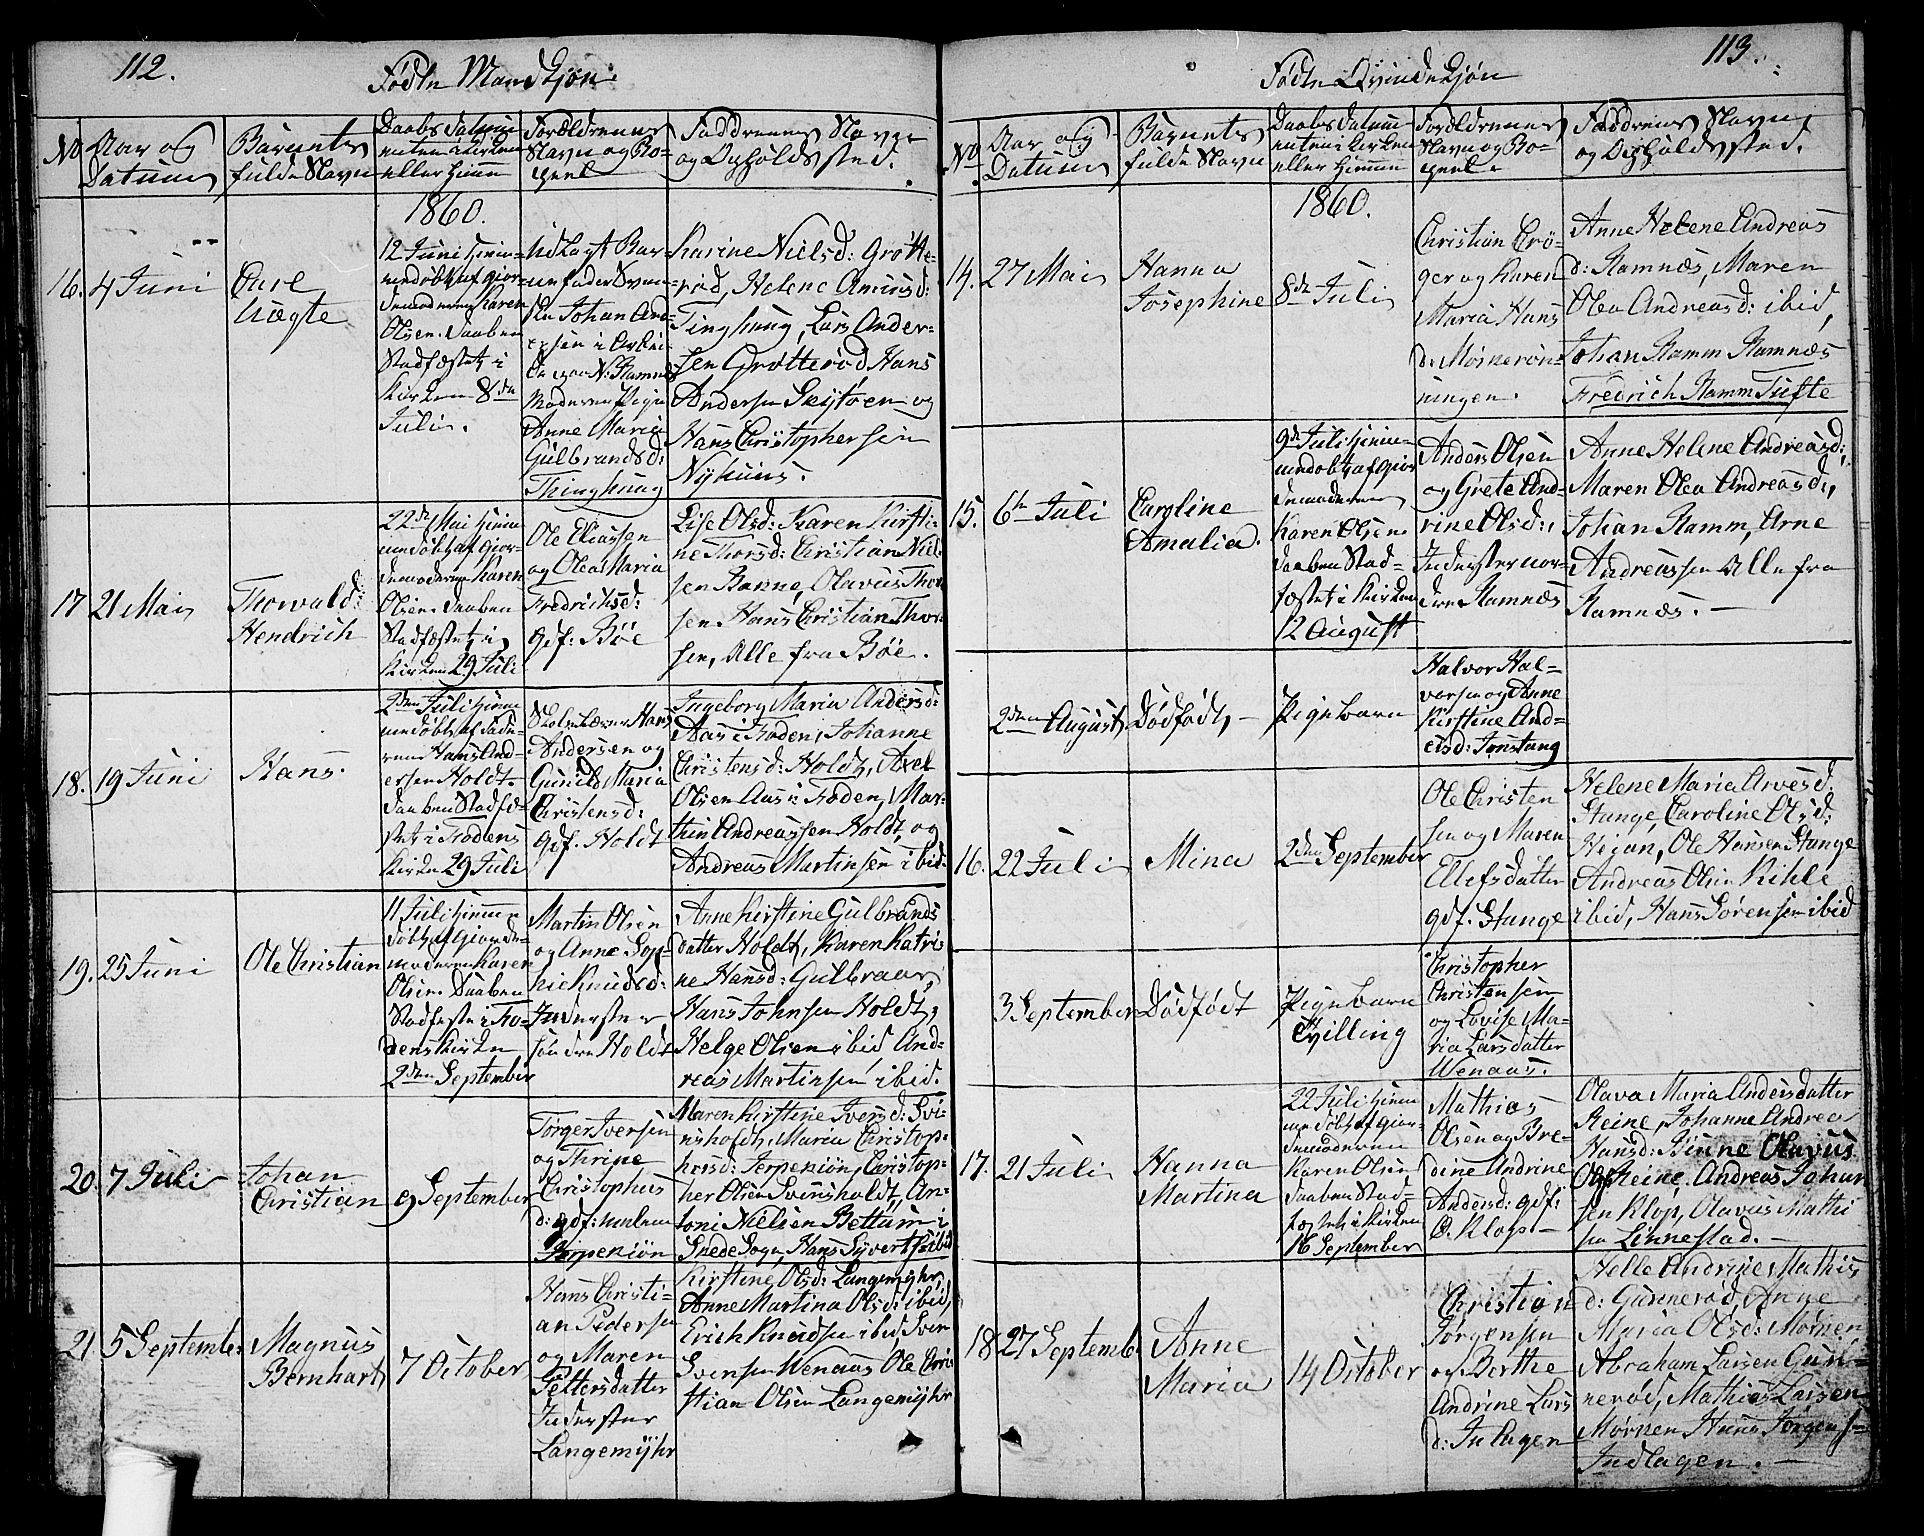 112.
Fødte Mandkjøn.
No
Aar og
Datum
Barnets
fulde Navn
Daabs Datum
enten i Kirken
eller Hjemme
Forældrenes
Navn og Bo-
pæl
Faddrenes Navn
og Opholdssted.
1860.
16.
4 Juni
Carl
12 Juni Hjem-
medøbt af Gjor-
demoderen Karen
Olsen. Daaben
Stadfæstet i
Kirken 8de
Juli.
Udlagt Bar-
Johan And-
Anne Maria
Gulbrandsd:
Thinghaug
Karine Nielsd: Grøtte-
rød, Helene
Tinghaug, Lars Ander-
sen Grøtterød Hans
Andersen Skytøen og
Hans Christophersen
Nyhuus.
17
21 Mai
Thorvald
Hendrich
22de Mai Hjem-
medøbt af Gjor-
demoderen Karen
Olsen. Daaben
Stadfæstet i
Kirken 29 Juli
Ole Eliassen
og Olea Maria
Fredrichsd:
gdf: Bøe
Lise Olsd: Karen Kirsti-
ne Thorsd: Christian Niel-
sen Hans Christian Thor-
sen, Alle fra Bøe.
18.
19 Juni
Hans.
2den Juli Hjem-
medøbt af Fade-
ren Hans And-
ersen Holdt.
Daaben Stadfæ-
stet i Fodens
Kirke 29 Juli
Skolelærer Hans
Andersen og
Gunild Maria
Christensd:
gdf. Holdt
Ingeborg Maria Andersd:
Aas i Foden, Johanne
Christensd: Holdt, Axel
Olsen Aas i Foden, Mar-
thin Andreassen Holdt, og
Andreas Martinsen ibid
19.
25 Juni
Ole Christian
11 Juli Hjemme-
døbt af Gjorde-
moderen Karen
Olsen. Daaben
Stadfæstet i Fo-
dens Kirke
2den September
Martin Olsen
og Anne Sop-
hie Knudsd:
Inderster
søndre Holdt
Anne Kirstine Gulbrands
datter Holdt, Karen Katri-
ne Hansd: Gulbraar,
Hans Johnsen Holdt,
Helge Olsen ibid And-
reas Martinsen ibid.
20.
7 Juli
Johan
Christian
9 September
Jørger Iversen
og Thrine
Christophers
d: gdf:
Jerpekiøn
Maren Kirstine Iversd: Svi-
nsholdt, Maria Christop-
hersd: Jerpekiøn, Christop-
her Olsen Svinsholdt, An-
toni Nielsen Bettum i
Snede Sogn, Hans Syvertsen ibid
21
5 Septembe:
Magnus
Bernhart,
7 October
Hans Christi-
an Pedersen
og Maren
Pettersdatter
Inderster
Langemyhr
Kirstine Olsd: Langemyhr
Anne Martina Olsd: ibid,
Erich Knudsen ibid Sven
Svensen Wenaas Ole Chris-
tian Olsen Langemyhr
113.
Fødte Qvindekjøn
No
Aar og
Datum
Barnets
fulde Navn
Daabs Datum
enten i Kirken
eller Hjemme
Forældrenes
Navn og Bo-
pæl.
Faddrenes Navn,
og Opholdssted.
1860.
14.
27 Mai
Hanna
Josephine
8de Juli
Christian Crø-
ger og Karen
Maria Hans
d:
ningen.
Anne Helene Andreas
d: Ramnæs, Maren
Olea Andreasd: ibid,
Johan Ramm Ramnæs
Fredrich Ramm Tufte
15.
6te Juli
Caroline
Amalia.
9de Juli Hjem-
medøbt af Gjor
demoderen
Karen Olsen
Daaben Stad-
fæstet i Kirken
12 August
Anders Olsen
og Grete And-
rine Olsd:,
Inderster nor-
dre Ramnæs
Anne Helene Andreasd:,
Maren Olea Andreasd:,
Johan Ramm, Arne
Andreassen Alle fra
Ramnæs. —
2den August
Dødfødt, —
Pigebarn
Halvor Hal-
vorsen og Anne
Kirstine And-
ersd: Jonstang
16.
22 Juli
Mina
2den September
Ole Christen
sen og Maren
Ellefsdatter
gdf. Stange
Helene Maria Arvesd:
Stange, Caroline Olsd:
Higan, Ole Hansen Stange
Andreas Olsen Kihle
ibid, Hans Sørensen ibid
3 September
Dødfødt
Pigebarn
Tvilling
Christopher
Christensen
og Lovise Ma-
ria Larsdatter
Wenaas.
17.
21 Juli
Hanna
Martina
22 Juli Hjem
medøbt af Gjor-
demoderen
Karen Olsen
Daaben Stad-
fæstet i Kirken
16 September
Mathias
Olsen og Bre-
dine Andrine
Andersd: gdf:
Ø. Klop —
Olava Maria Andersdatter
Reine, Johanne Andrea
Hansd: Olavus
Reine. Andreas Johan
sen Klop, Olavus Mathi
sen Linnestad. —
18
27 Septemb
Anne
Maria
14 October
Christian
Jørgensen
og Berthe
Andrine Lars
d: Inlagen
Helle Andrine Mathis
d: Gunnerød, Anne
Maria Olsd: Mørken
Abraham Larsen Gun-
nerød, Mathias Larsen
Mørken Hans Jørgens-
Indlagen. —